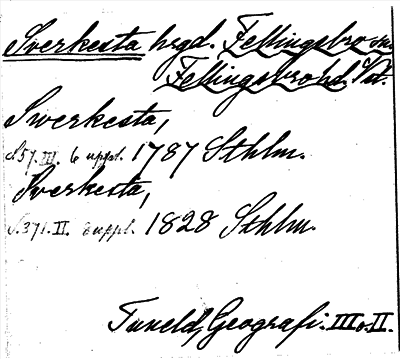 Sverkesta hrgd. Fellingsbro sn.
Fellingsbrohd. Vstl.
Swerkesta,
S. 57. III. 6 uppl. 1787 Sthlm.
Sverkesta,
S. 371. II. 8 uppl. 1828 Sthlm.
Tuneld, Geografi. III o. II.